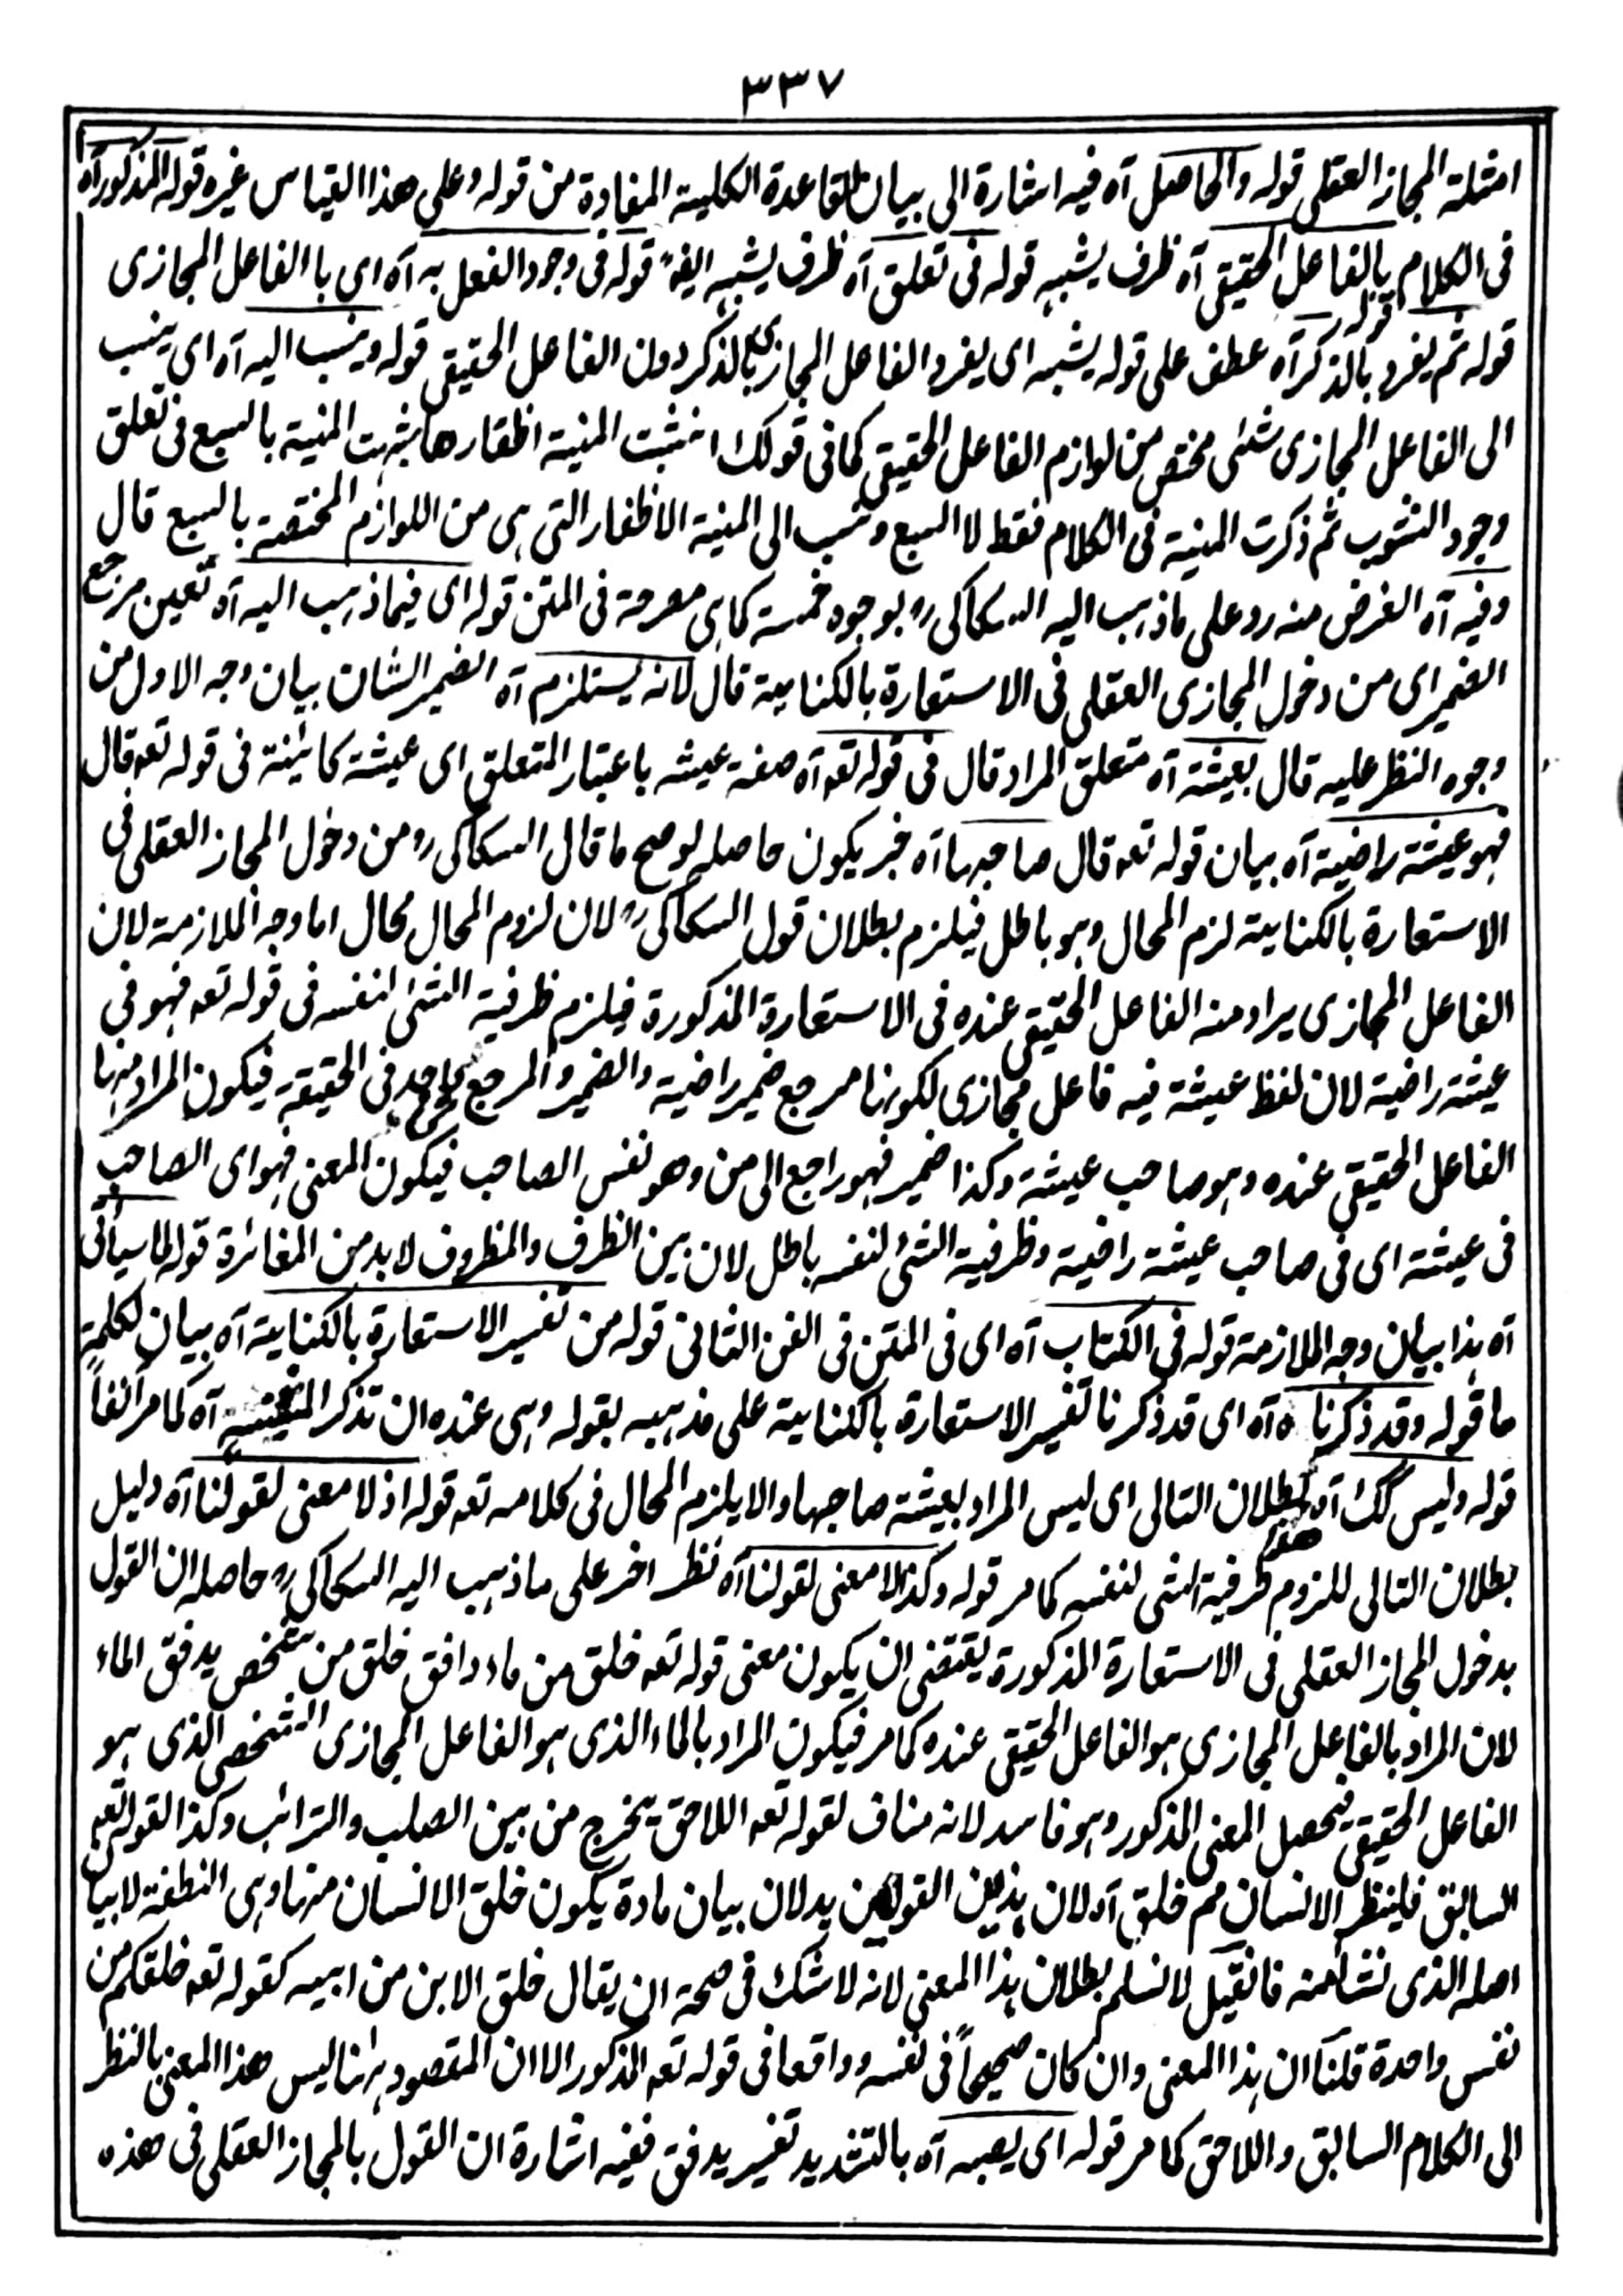 ٣٣٧
امثلة المجاز العقلى قوله والحاصل آه فيه اشارة الى بيان القاعدة الكلية المفادة من قوله وعلى هذا القياس غيره قوله المذكور آه
فى الكلام بالفاعل الحقيقى آه ظرف يشبه قوله فى تعلق آه ظرف يشبه ايضا قوله فى وجود الفعل به آه اى با الفاعل المجازى
قوله ثم يفرد بالذكر آه عطف على قوله يشبه اى يفرد الفاعل المجازى بالذكر دون الفاعل الحقيقى قوله وينسب اليه آه اى ينسب
الى الفاعل المجازى شئى مختص من لوازم الفاعل الحقيقى كما فى قولك انشبت المنية اظفارها شبهت المنية بالسبع فى تعلق
وجود النشوب ثم ذكرت المنية فى الكلام فقط لا السبع ونسب الى المنية الاظفار التى هى من اللوازم المختصة بالسبع قال
وفيه آه الغرض منه رد على ماذهب اليه السكاكى رح بوجوه خمسة كما هى مصرحة فى المتن قوله اى فيما ذهب اليه آه تعين مرجع
الضمير اى من دخول المجازى العقلى فى الاستعارة بالكناية قال لانه يستلزم آه الضمير الشان بيان وجه الاول من
وجوه النظر عليه قال بعيشة آه متعلق المراد قال فى قوله تعه آه صفة عيشه باعتبار المتعلق اى عيشة كائينة فى قوله تعه قال
فهو عيشة راضية آه بيان قوله تعه قال صاحبها آه خبر يكون حاصله لو صح ما قال السكاكى رح من دخول المجاز العقلى فى
الاستعارة بالكناية لزم المحال وهو باطل فيلزم بطلان قول السكاكى رح لان لزوم المحال محال اما وجه الملازمة لان
الفاعل المجازى يراد منه الفاعل الحقيقى عنده فى الاستعارة المذكورة فيلزم ظرفية الشئى لنفسه فى قوله تعه فهو فى
عيشة راضية لان لفظ عيشة فيه فاعل مجازى لكونها مرجع ضمير راضية والضمير والمرجع واحد فى الحقيقة فيكون المراد منها
الفاعل الحقيقى عنده وهو صاحب عيشة وكذا ضمير فهو راجع الى من وهو نفس الصاحب فيكون المعنى فهو اى الصاحب
فى عيشة اى فى صاحب عيشة راضية وظرفية الشئ لنفسه باطل لان بين الظرف والمظروف لابد من المغائرة قوله لما سيأتى
آه هذا بيان وجه الملازمة قوله فى الكتاب آه اى فى المتن فى الفن الثانى قوله من تفسير الاستعارة بالكناية آه بيان لكلمة
ما قوله وقد ذكرناه آه اى قد ذكرنا تفسير الاستعارة بالكناية على مذهبه بقوله وهى عنده ان تذكر المشبه آه كما مر آنفاً
قوله وليس كك آه بطلان التالى اى ليس المراد بعيشة صاحبها والا يلزم المحال فى كلامه تعه قوله اذ لا معنى لقولنا آه دليل
بطلان التالى للزوم ظرفية الشى لنفسه كما مر قوله وكذا لا معنى لقولنا آه نظر اخر على ماذهب اليه السكاكى رح حاصله ان القول
بدخول المجاز العقلى فى الاستعارة المذكورة يقتضى ان يكون معنى قوله تعه خلق من ماء دافق خلق من شخص يدفق الماء
لان المراد بالفاعل المجازى هو الفاعل الحقيقى عنده كما مر فيكون المراد بالماء الذى هو الفاعل المجازى الشخص الذى هو
الفاعل الحقيقى فيحصل المعنى المذكور وهو فاسد لانه مناف لقوله تعه اللاحق يخرج من بين الصلب والترائب وكذا القوله تعه
السابق فلينظر الانسان مم خلق آه لان هذين القولين يدلان بيان مادة يكون خلق الانسان منها وهى النطفة لا بيان
اصله الذى نشأ منه فانقيل لا نسلم بطلان هذا المعنى لانه لا شك فى صحة ان يقال خلق الابن من ابيه كقوله تعه خلقكم من
نفس واحدة قلنا ان هذا المعنى وان كان صحيحاً فى نفسه وواقعا فى قوله تعه المذكور الا ان المقصود ههنا ليس هذا المعنى بالنظر
الى الكلام السابق واللاحق كما مر قوله اى يصبه آه بالتشديد تفسير يدفق ففيه اشارة ان القول بالمجاز العقلى فى هذه